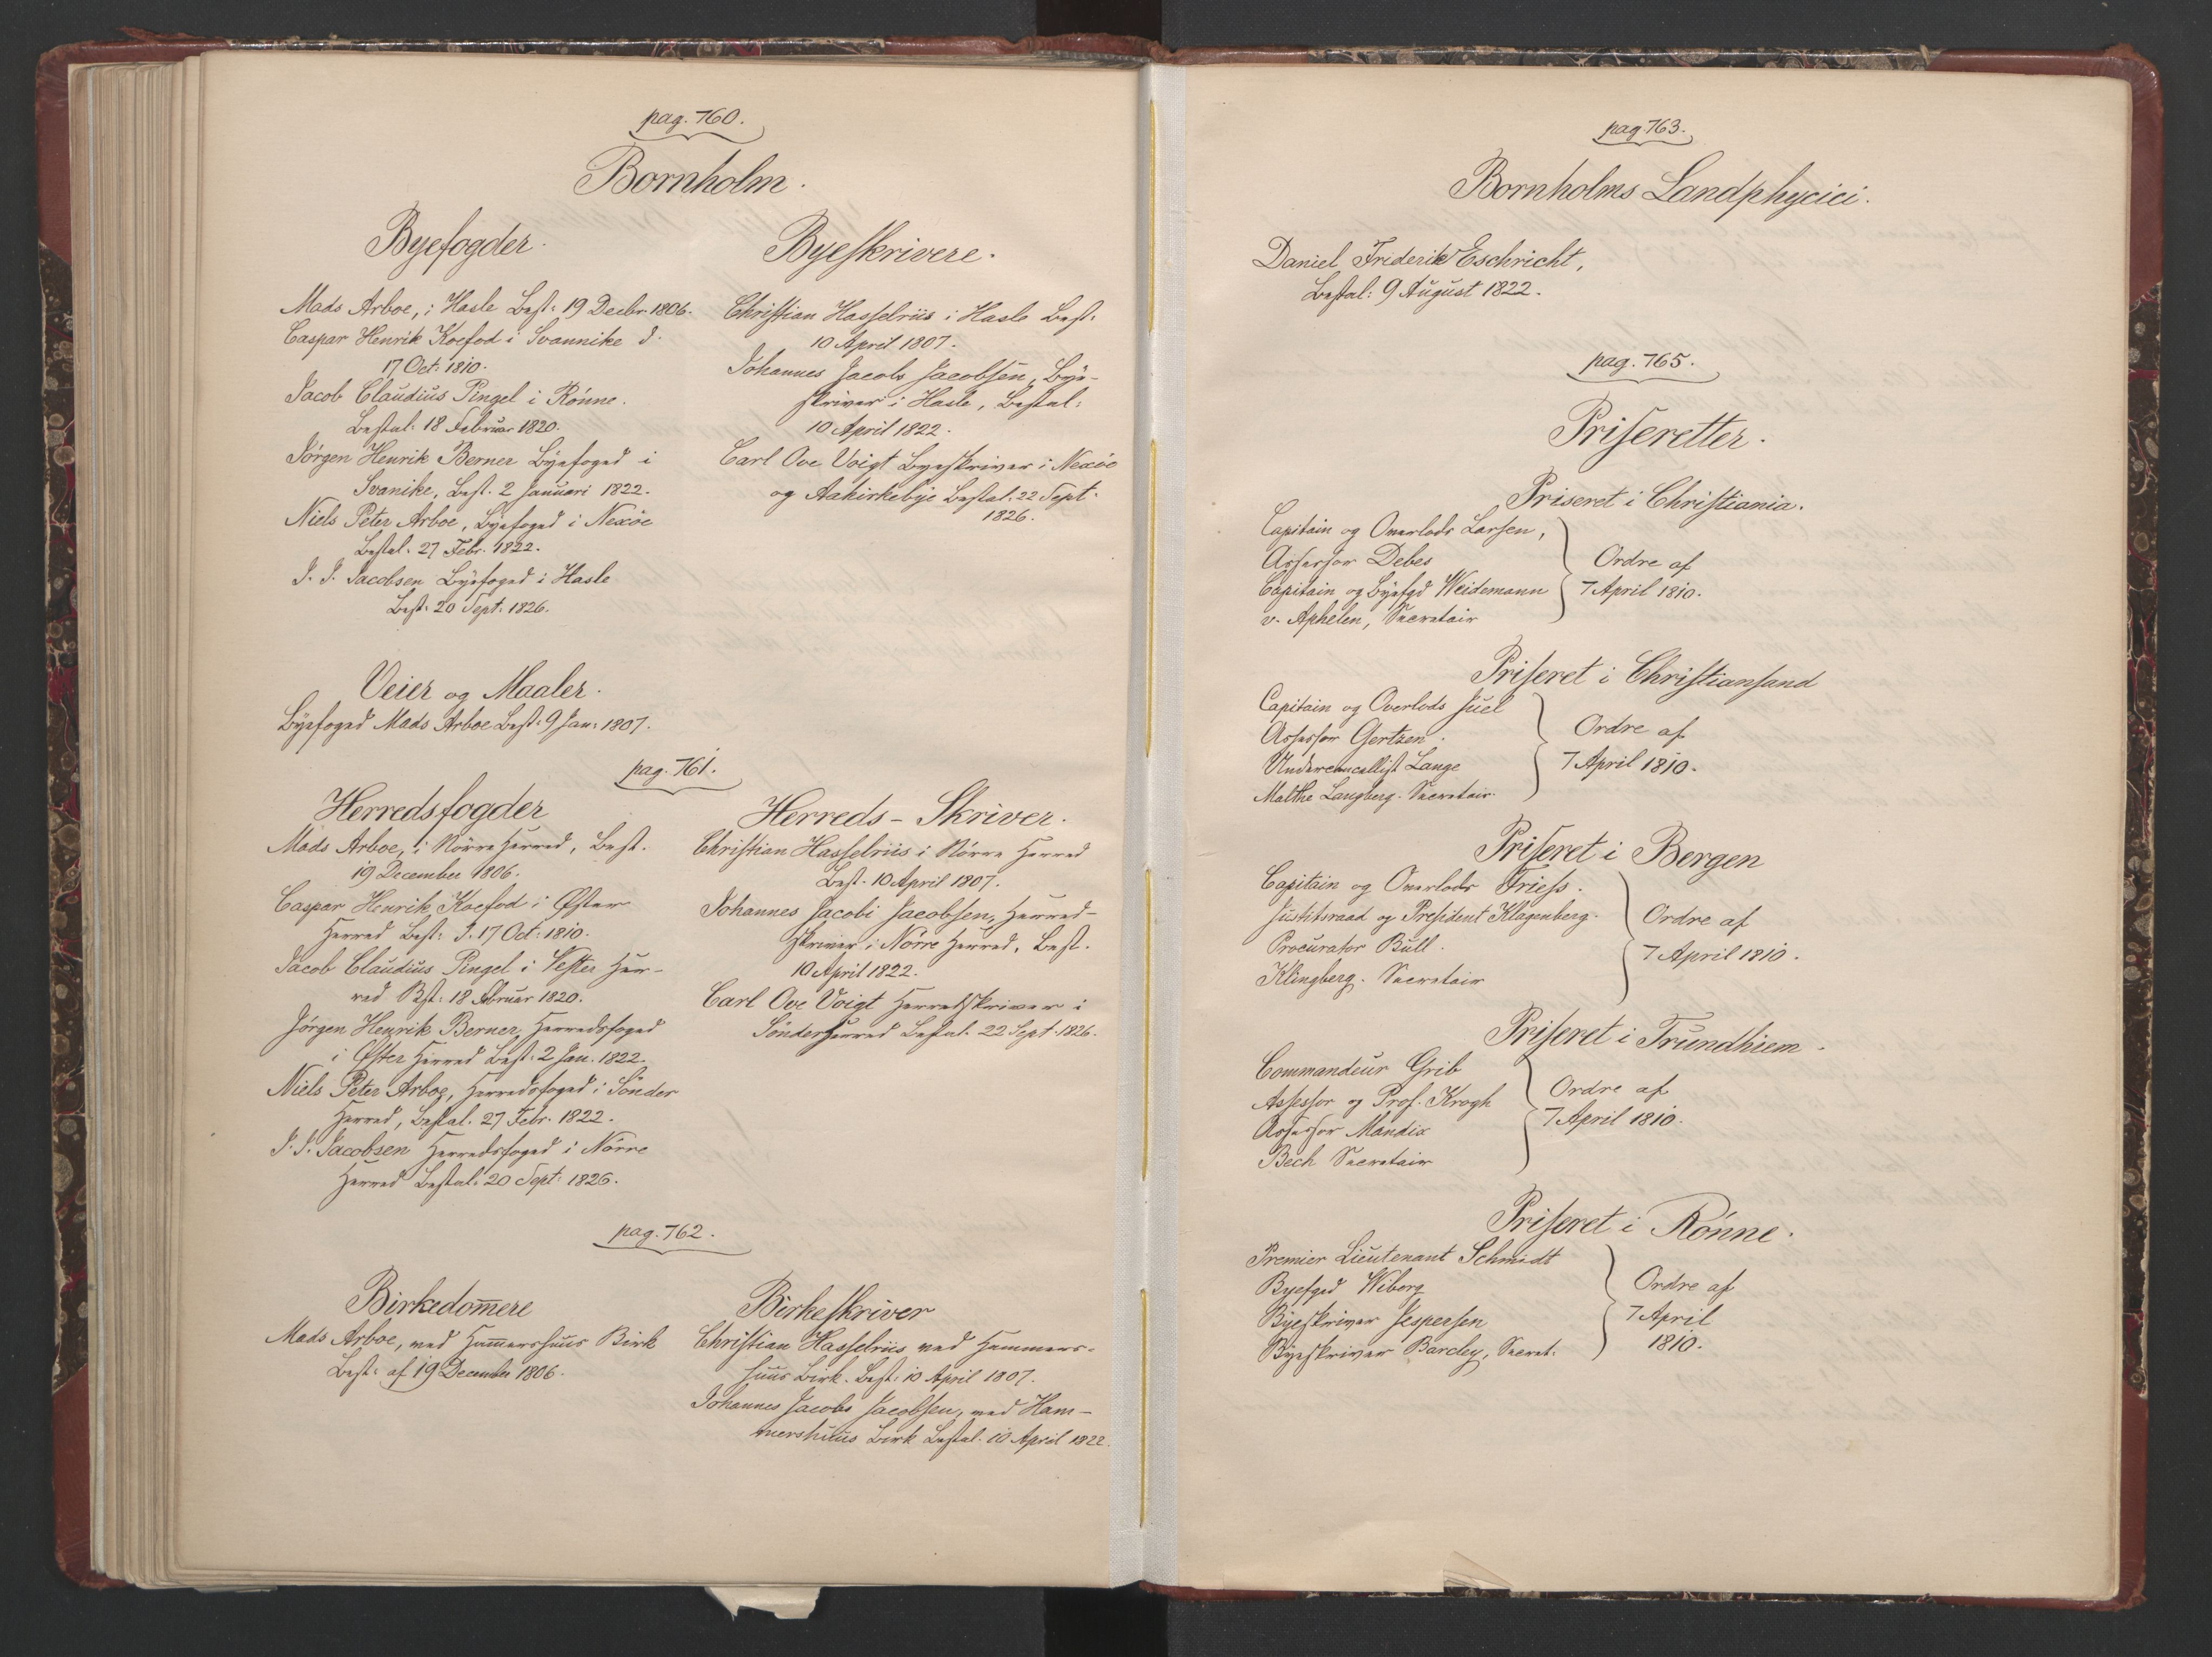 pag. 760.
Bornholm.
Byefogder.
Mads Arboe, i Hasle Best: 19 Decbr 1806.
Caspar Henrik Koefod i Svannike d.
17 Oct: 1810.
Jacob Claudius Pingel i Rönne.
Bestal: 18 Februar 1820.
Jørgen Henrik Berner Byefoged i
Svanike, Best. 2 Januari 1822.
Niels Peter Arboe, Byefoged i Nexöe
Bestal: 27 Febr. 1822.
J. J. Jacobsen Byefoged i Hasle
Best: 20 Sept: 1826.
Byeskrivere.
Christian Hasselriis i Hasle Best:
10 April 1807.
Johannes Jacobi Jacobsen, Bye-
skriver i Hasle, Bestal:
10 April 1822.
Carl Ove Voigt Byeskriver i Nexöe
og Aakirkebye Bestal. 22 Sept.
1826.
Veier og Maaler.
Byefoged Mads Arboe Best: 9 Jan: 1807.
pag. 761.
Herredsfogder
Mads Arboe, i Nörre Herred, Best.
19 December 1806.
Caspar Henrik Koefod i Øster
Herred Best: d. 17 Oct: 1810.
Jacob Claudius Pingel i Vester Her-
red Bst: 18 Februar 1820.
Jørgen Henrik Berner, Herredsfoged
i Øster Herred Best: 2 Jan. 1822.
Niels Peter Arboe, Herredsfoged i Sönder
Herred, Bestal. 27 Febr. 1822.
J. J. Jacobsen Herredsfoged i Nörre
Herred Bestal: 20 Sept: 1826.
Herreds-Skriver.
Christian Hasselriis i Nörre Herred
Best. 10 April 1807.
Johannes Jacobi Jacobsen, Herred-
skriver i Nörre Herred, Best.
10 April 1822.
Carl Ove Voigt Herredskriver i
Sönder Herred Bestal. 22 Sept. 1826.
pag. 762.
Birkedom̄ere
Mads Arboe, ved Ham̄ershuus Birk
Best: af 19 December 1806.
Birkeskriver
Christian Hasselriis ved Hammers-
huus Birk. Best: 10 April 1807.
Johannes Jacobi Jacobsen, ved Ham-
mershuus Birk Bestal. 10 April 1822
pag. 763.
Bornholms Landphycici.
Daniel Friderik Eschricht,
Bestal: 9 August 1822.
pag. 765.
Priseretter.
Priseret i Christiania.
Capitain og Overlods Larsen,
Assessor Debes
Capitain og Byefgd Weidemann
v. Aphelen, Secretair
Ordre af
7 April 1810.
Priseret i Christiansand
Capitain og Overlods Juel
Assessor Gertzen.
Undercancellist Lange
Malthe Langberg. Secretair.
Ordre af
7 April 1810.
Priseret i Bergen
Capitain og Overlods Friess.
Justitsraad og President Klagenberg.
Procurator Bull.
Klingberg. Secretair
Ordre af
7 April 1810.
Priseret i Trundhiem.
Commandeur Grib
Assessor og Prof. Krogh
Assessor Mandix
Bech Secretair
Ordre af
7 April 1810.
Priseret i Rönne.
Premier Lieutenant Schmidt
Byefged Wiborg
Byeskriver Jespersen
Byeskriver Barcley, Secret.
Ordre af
7 April
1810.